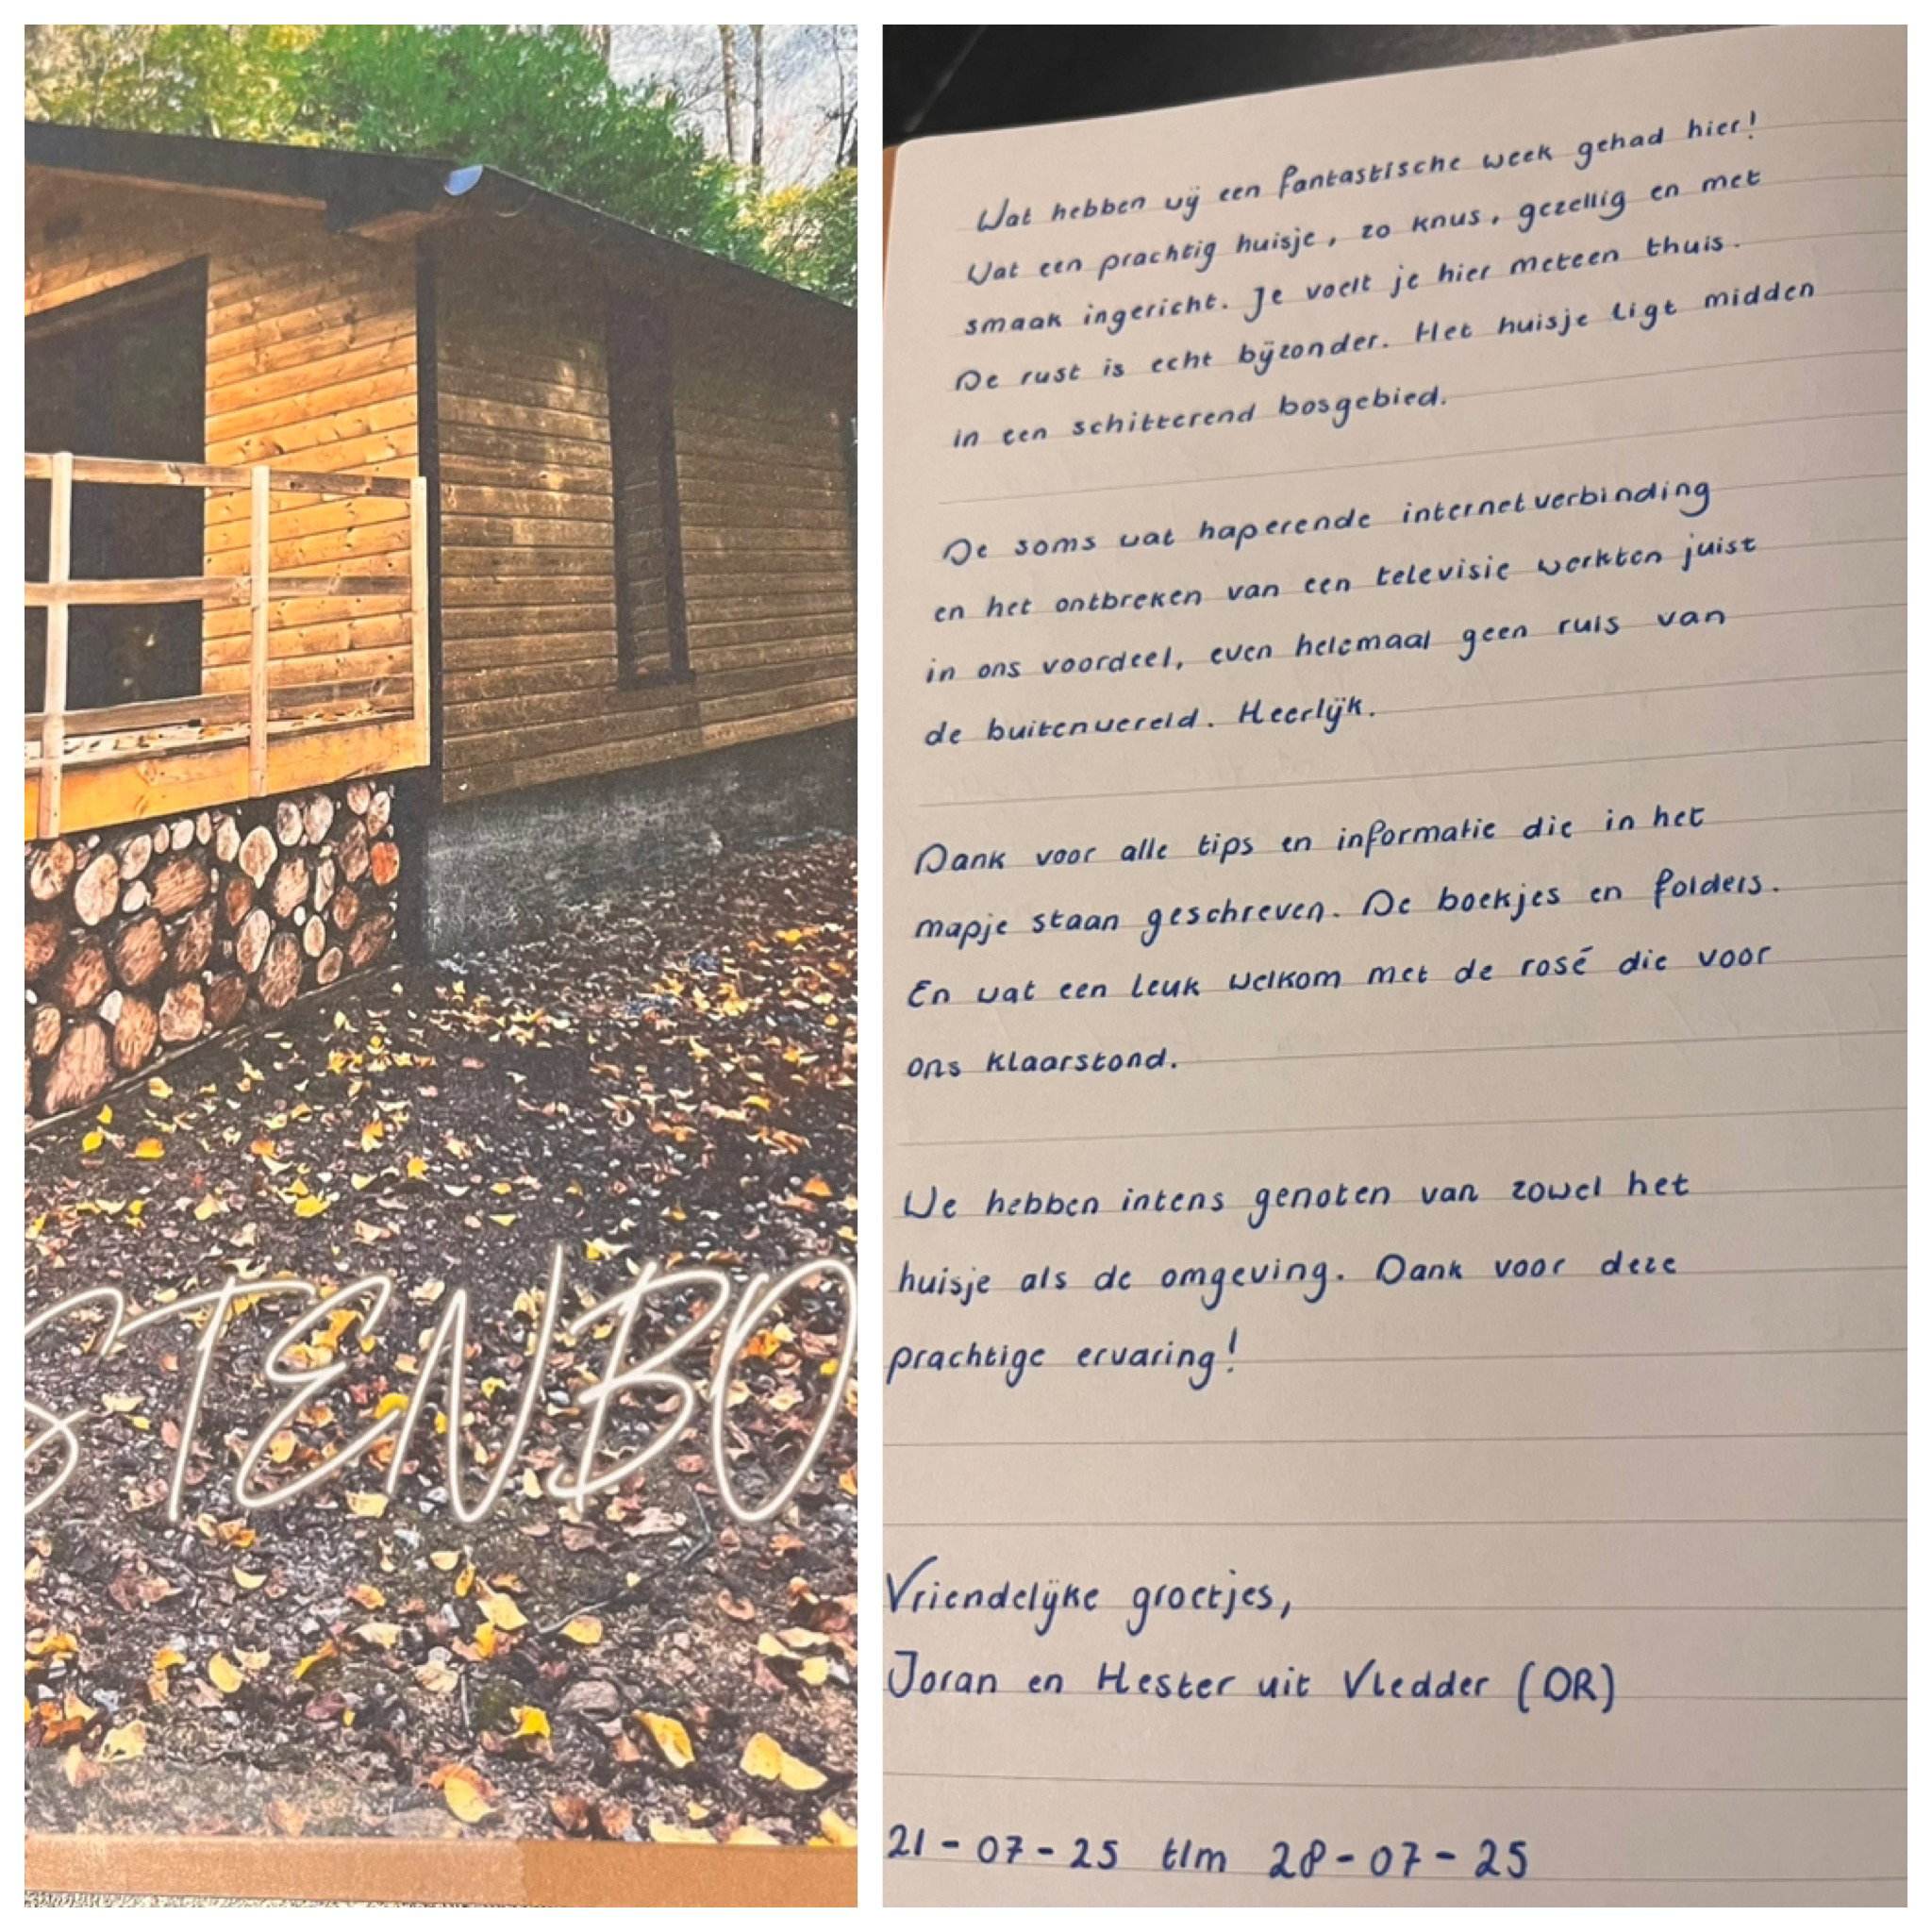 STENBO
Wat hebben wij een fantastische week gehad hier!
Wat een prachtig huisje, zo knus, gezellig en met
smaak ingericht. Je voelt je hier meteen thuis.
De rust is echt bijzonder. Het huisje ligt midden
in een schitterend bosgebied.
De soms wat haperende internetverbinding
en het ontbreken van een televisie werkten juist
in ons voordeel, even helemaal geen ruis van
de buitenwereld. Heerlijk.
Dank voor alle tips en informatie die in het
mapje staan geschreven. De boekjes en folders.
En wat een leuk welkom met de rosé die voor
ons klaarstond.
We hebben intens genoten van zowel het
huisje als de omgeving. Dank voor deze
prachtige ervaring!
Vriendelijke groetjes,
Joran en Hester uit Vledder (DR)
21-07-25 t/m 28-07-25